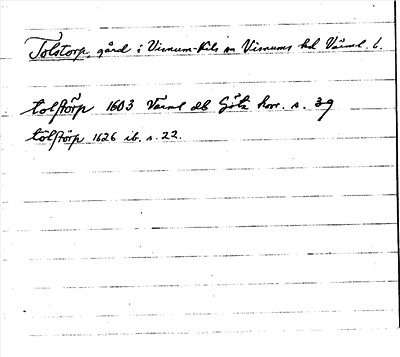 Tolstorp, gård i Visnum-Kils sn Visnums hd Värml. l.
tolstörp 1603 Värml db Göta horr. s. 39
tölstörp 1626 ib. s. 22.